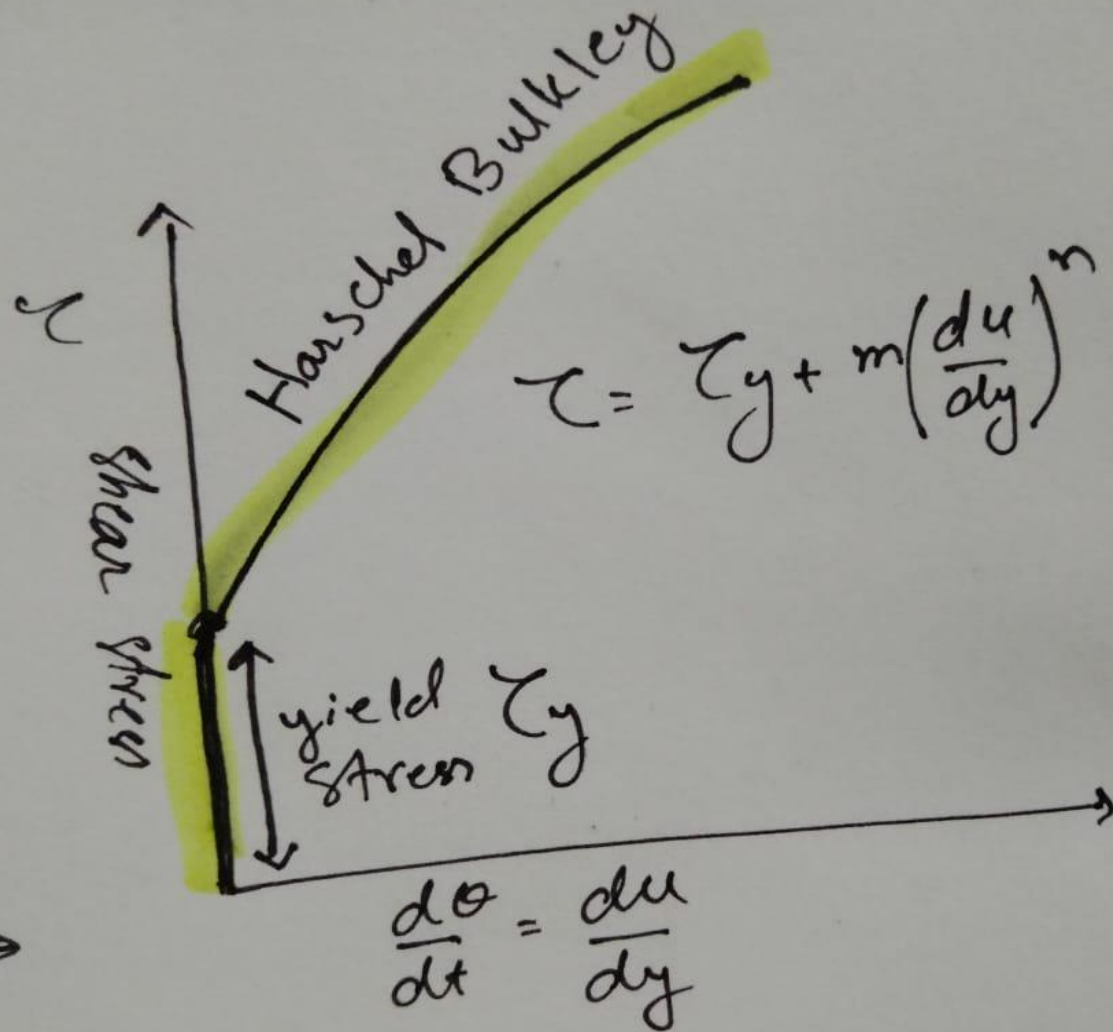 Harschel Bulkley
τ
shear stress
τ = τy + m(du/dy)^n
yield
stress τy
dθ/dt = du/dy